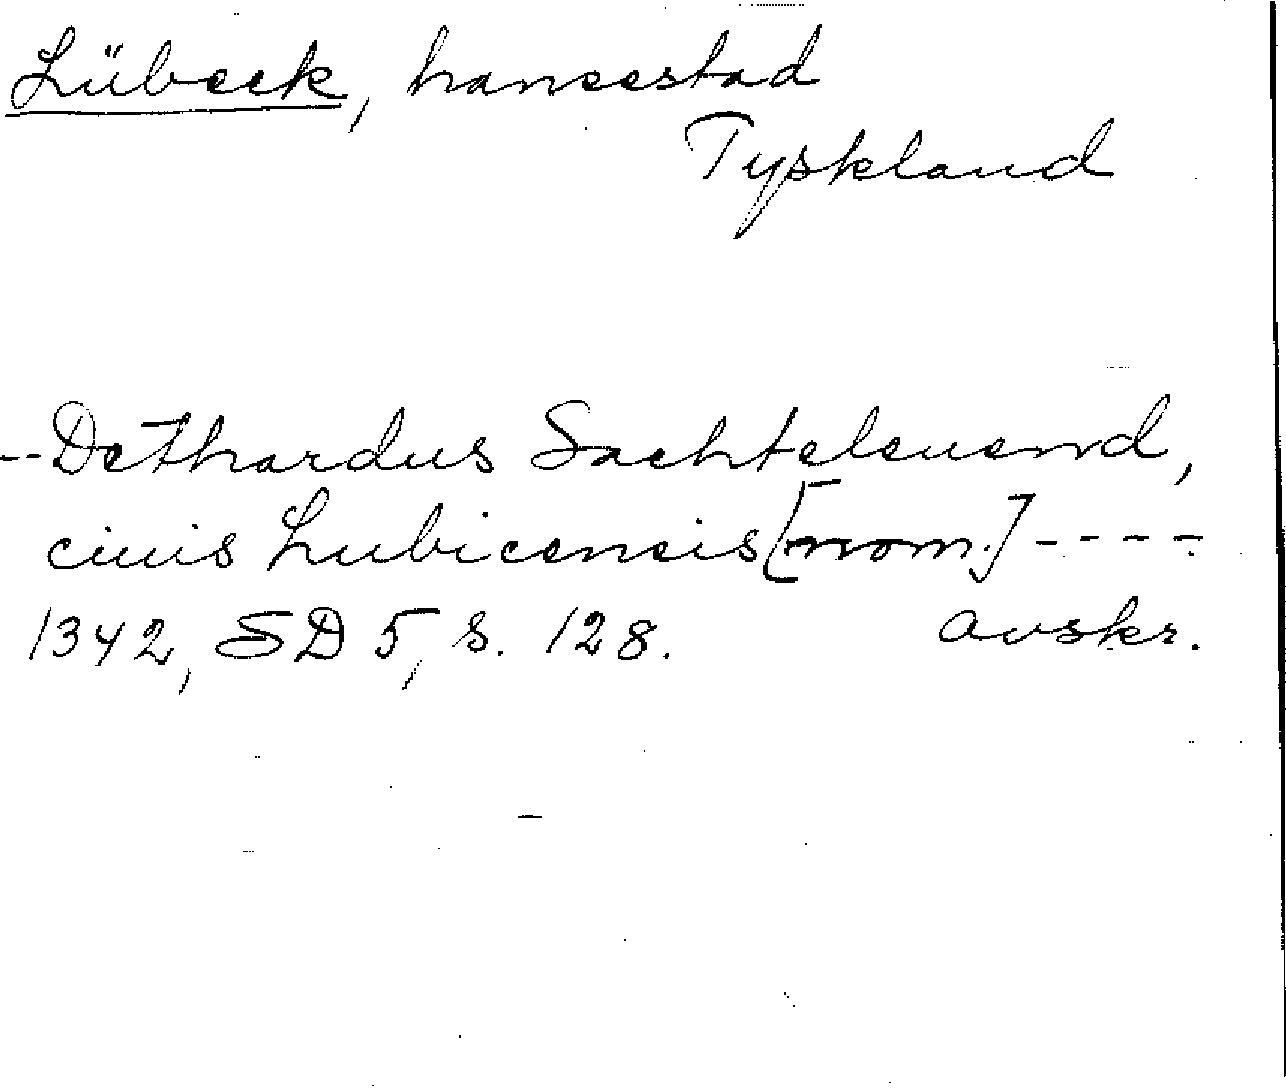 Lübeck, hansestad
Tyskland
--Dethardus Sachteleuend,
ciuis Lubicensis [nom.] ----
1342, SD 5, s. 128. avskr.